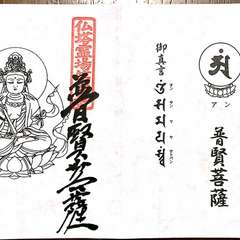 アン
普賢菩薩
御真言
普賢菩薩
仏塔霊場